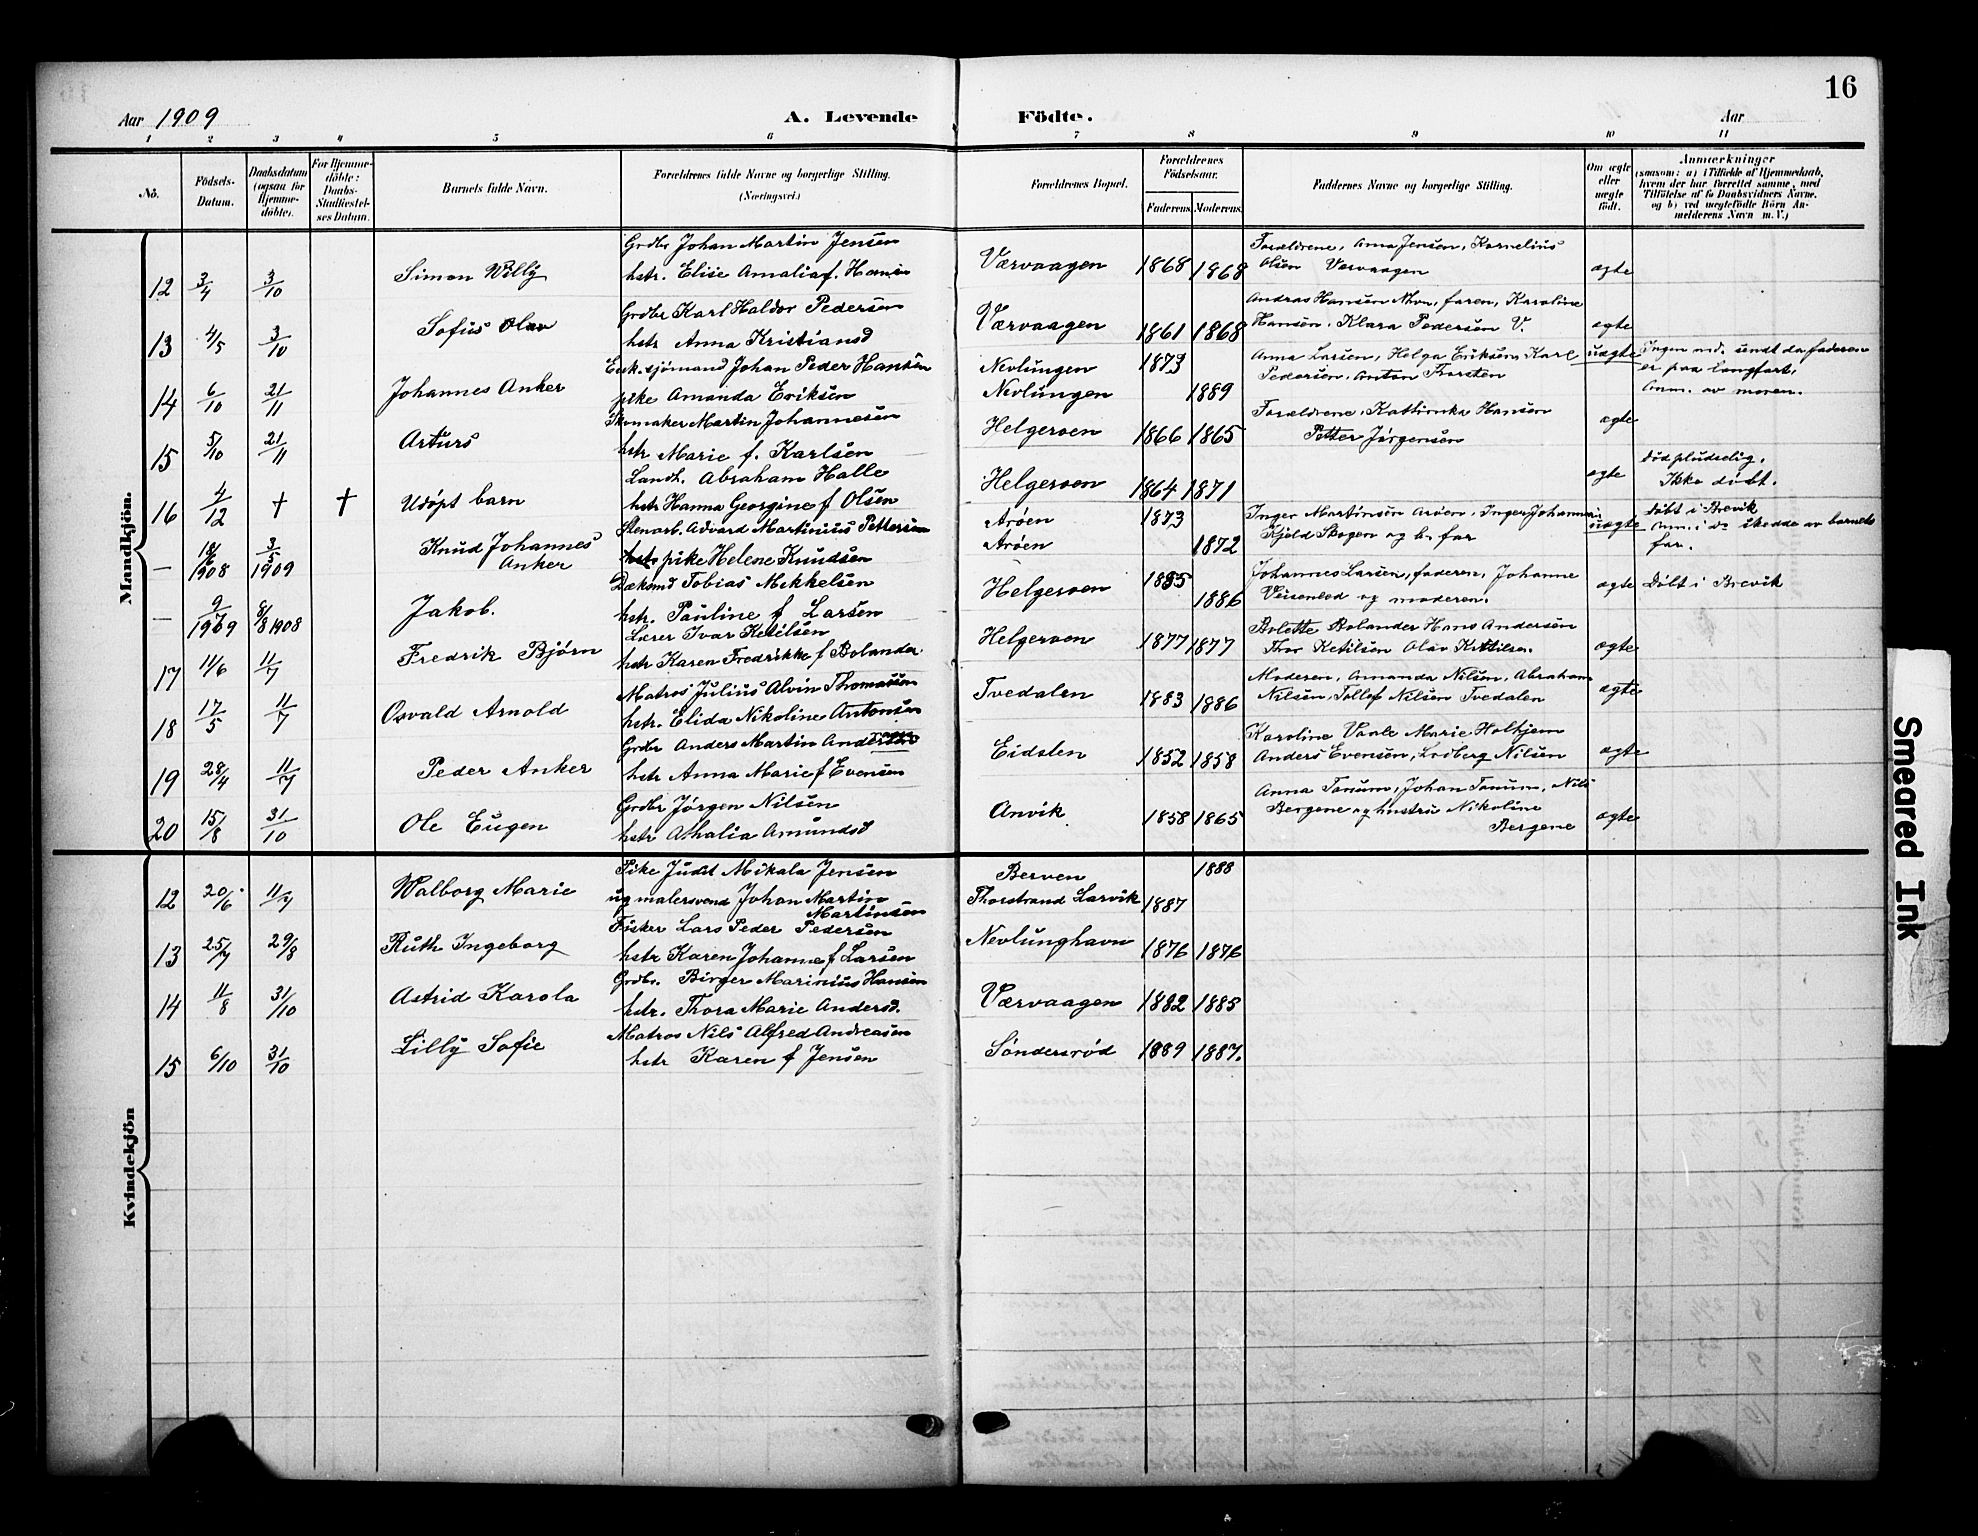 16
Aar 1909
A. Levende
Födte.
Aar
1 2 3 4 5 6 7 8 9 10 11
No.
Födsels-
Datum.
Daabsdatum
(ogsaa for
Hjemme-
döbte).
For Hjemme-
döbte:
Daabs-
Stadfæstel-
ses Datum.
Barnets fulde Navn.
Forældrenes fulde Navne og borgerlige Stilling.
(Næringsvei.)
Forældrenes Bopæl.
Forældrenes
Födselsaar.
Faderens.
Moderens.
Faddernes Navne og borgerlige Stilling.
Om ægte
eller
uægte
födt.
Anmærkninger
(saasom: a) i Tilfælde af Hjemmedaab,
hvem der har forrettet samme, med
Tilföielse af to Daabsvidners Navne.
og b) ved uægtefödte Börn An-
melderens Navn m. V.)
Mandkjön.
12 3/4 3/10 Simon Willy
Grdbr Johan Martin Jensen
hstr. Elise Amalia f. Hansen
Værvaagen 1868 1868
Forældrene, Anna Jensen, Kornelius
Olsen Værvaagen
ægte
13 4/5 3/10 Sofus Olav
Grdbr Karl Haldor Pedersen
hstr Anna Kristiansd
Værvaagen 1861 1868
Andras Hansen Nhvn, faren, Karoline
Hansen, Klara Pedersen V.
ægte
14 6/10 21/11 Johannes Anker
Enk. sjömand Johan Peder Hansen
pike Amanda Eriksen
Nevlungen 1873
Nevlungen 1889
Anna Larsen, Helga Eriksen, Karl
Pedersen, Anton Thorsten
uægte
Ingen md. sendt da faderen
er paa langfart,
Anm. av moren.
15 5/10 21/11 Arturs
Skomaker Martin Johannesen
hstr Marie f. Karlsen
Helgeroen 1866 1865
Forældrene, Kathinka Hansen
Petter Jørgensen
ægte
16 4/12 † † Udøpt barn
Landh. Abraham Halle
hstr Hanna Georgine f Olsen
Helgeroen 1864 1871
ægte
død pludselig.
Ikke döbt.
— 18/6 1908 3/5 1909 Knud Johannes
Anker
Stenarb. Advard Martinius Pettersen
hstr pike Helene Knudsen
Arøen 1873
Arøen 1872
Inger Martinsen Arøen, Inger Johannsen
Kjeld Skogen og b. far
uægte
døbt i Brevik
far.
— 1909 8/8 1908 Jakob.
Dæksmd Tobias Mikkelsen
hstr. Pauline f Larsen
Helgeroen 1885 1886
Johannes Larsen, faderen, Johanne
og moderen.
ægte
Døbt i Brevik
17 11/6 11/7 Fredrik Bjørn
Lærer Ivar Ketilsen
hstr Karen Fredrikke f Bolander
Helgeroen 1877 1877
Bolette Bolander Hans Andersen
Thor Ketilsen Olav Kittilsen
ægte
18 17/5 11/7 Osvald Arnold
Matros Julius Alvin Thomassen
hstr. Elida Nikoline Antonsen
Tvedalen 1883 1886
Moderen, Amanda Nilsen, Abraham
Nilsen, Tollef Nilsen Tvedalen
ægte
19 28/4 11/7 Peder Anker
Grdbr Anders Martin Andersen
hstr Anna Marie f Evensen
Eidsten 1852 1858
Karoline Vaale Marie Holtjem
Anders Evensen, Lodberg Nilsen
ægte
20 15/8 31/10 Ole Eugen
Grdbr Jørgen Nilsen
hstr Athalia Amundsd
Anvik 1858 1865
Anna Tanum, Johan Tanum, Nils
Bergene og hustru Nikoline
Bergene
ægte
Kvindekjön
12 20/6 11/7 Walborg Marie
Pike Judit Mikala Jensen
ug malersvend Johan Martin
Martinsen
Berven 1888
Thorstrand Larvik 1887
13 25/7 29/8 Ruth Ingeborg
Fisker Lars Peder Pedersen
hstr Karen Johanne f Larsen
Nevlunghavn 1876 1876
14 11/8 31/10 Astrid Karola
Grdbr. Birger Marinius Hansen
hstr. Thora Marie Andersd.
Værvaagen 1882 1885
15 6/10 31/10 Lilly Sofie
Matros Nils Alfred Andreasen
hstr Karen f Jensen
Söndersrød 1889 1887.
Smeared Ink